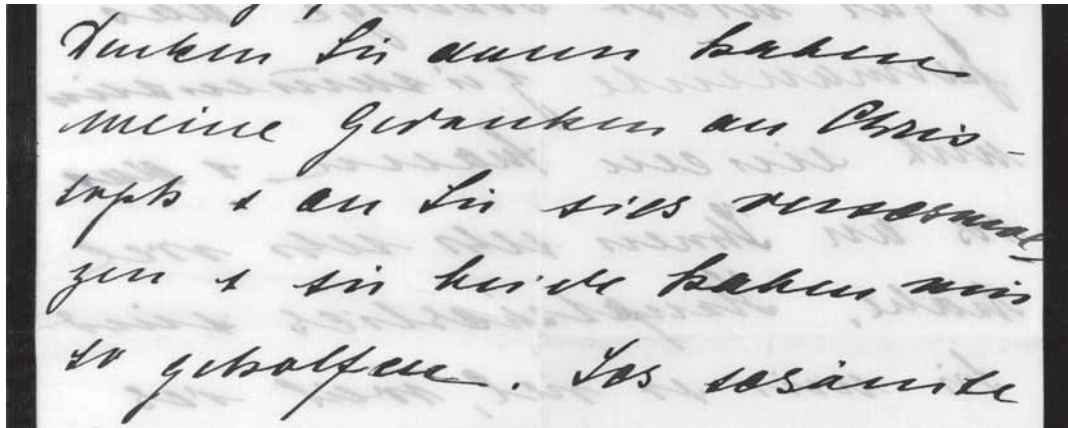 Denken Sie haben
meine Gedanken an Chris-
toph + an Sie sich verschmol-
zen + sie beide haben mir
so geholfen. Ich schämte